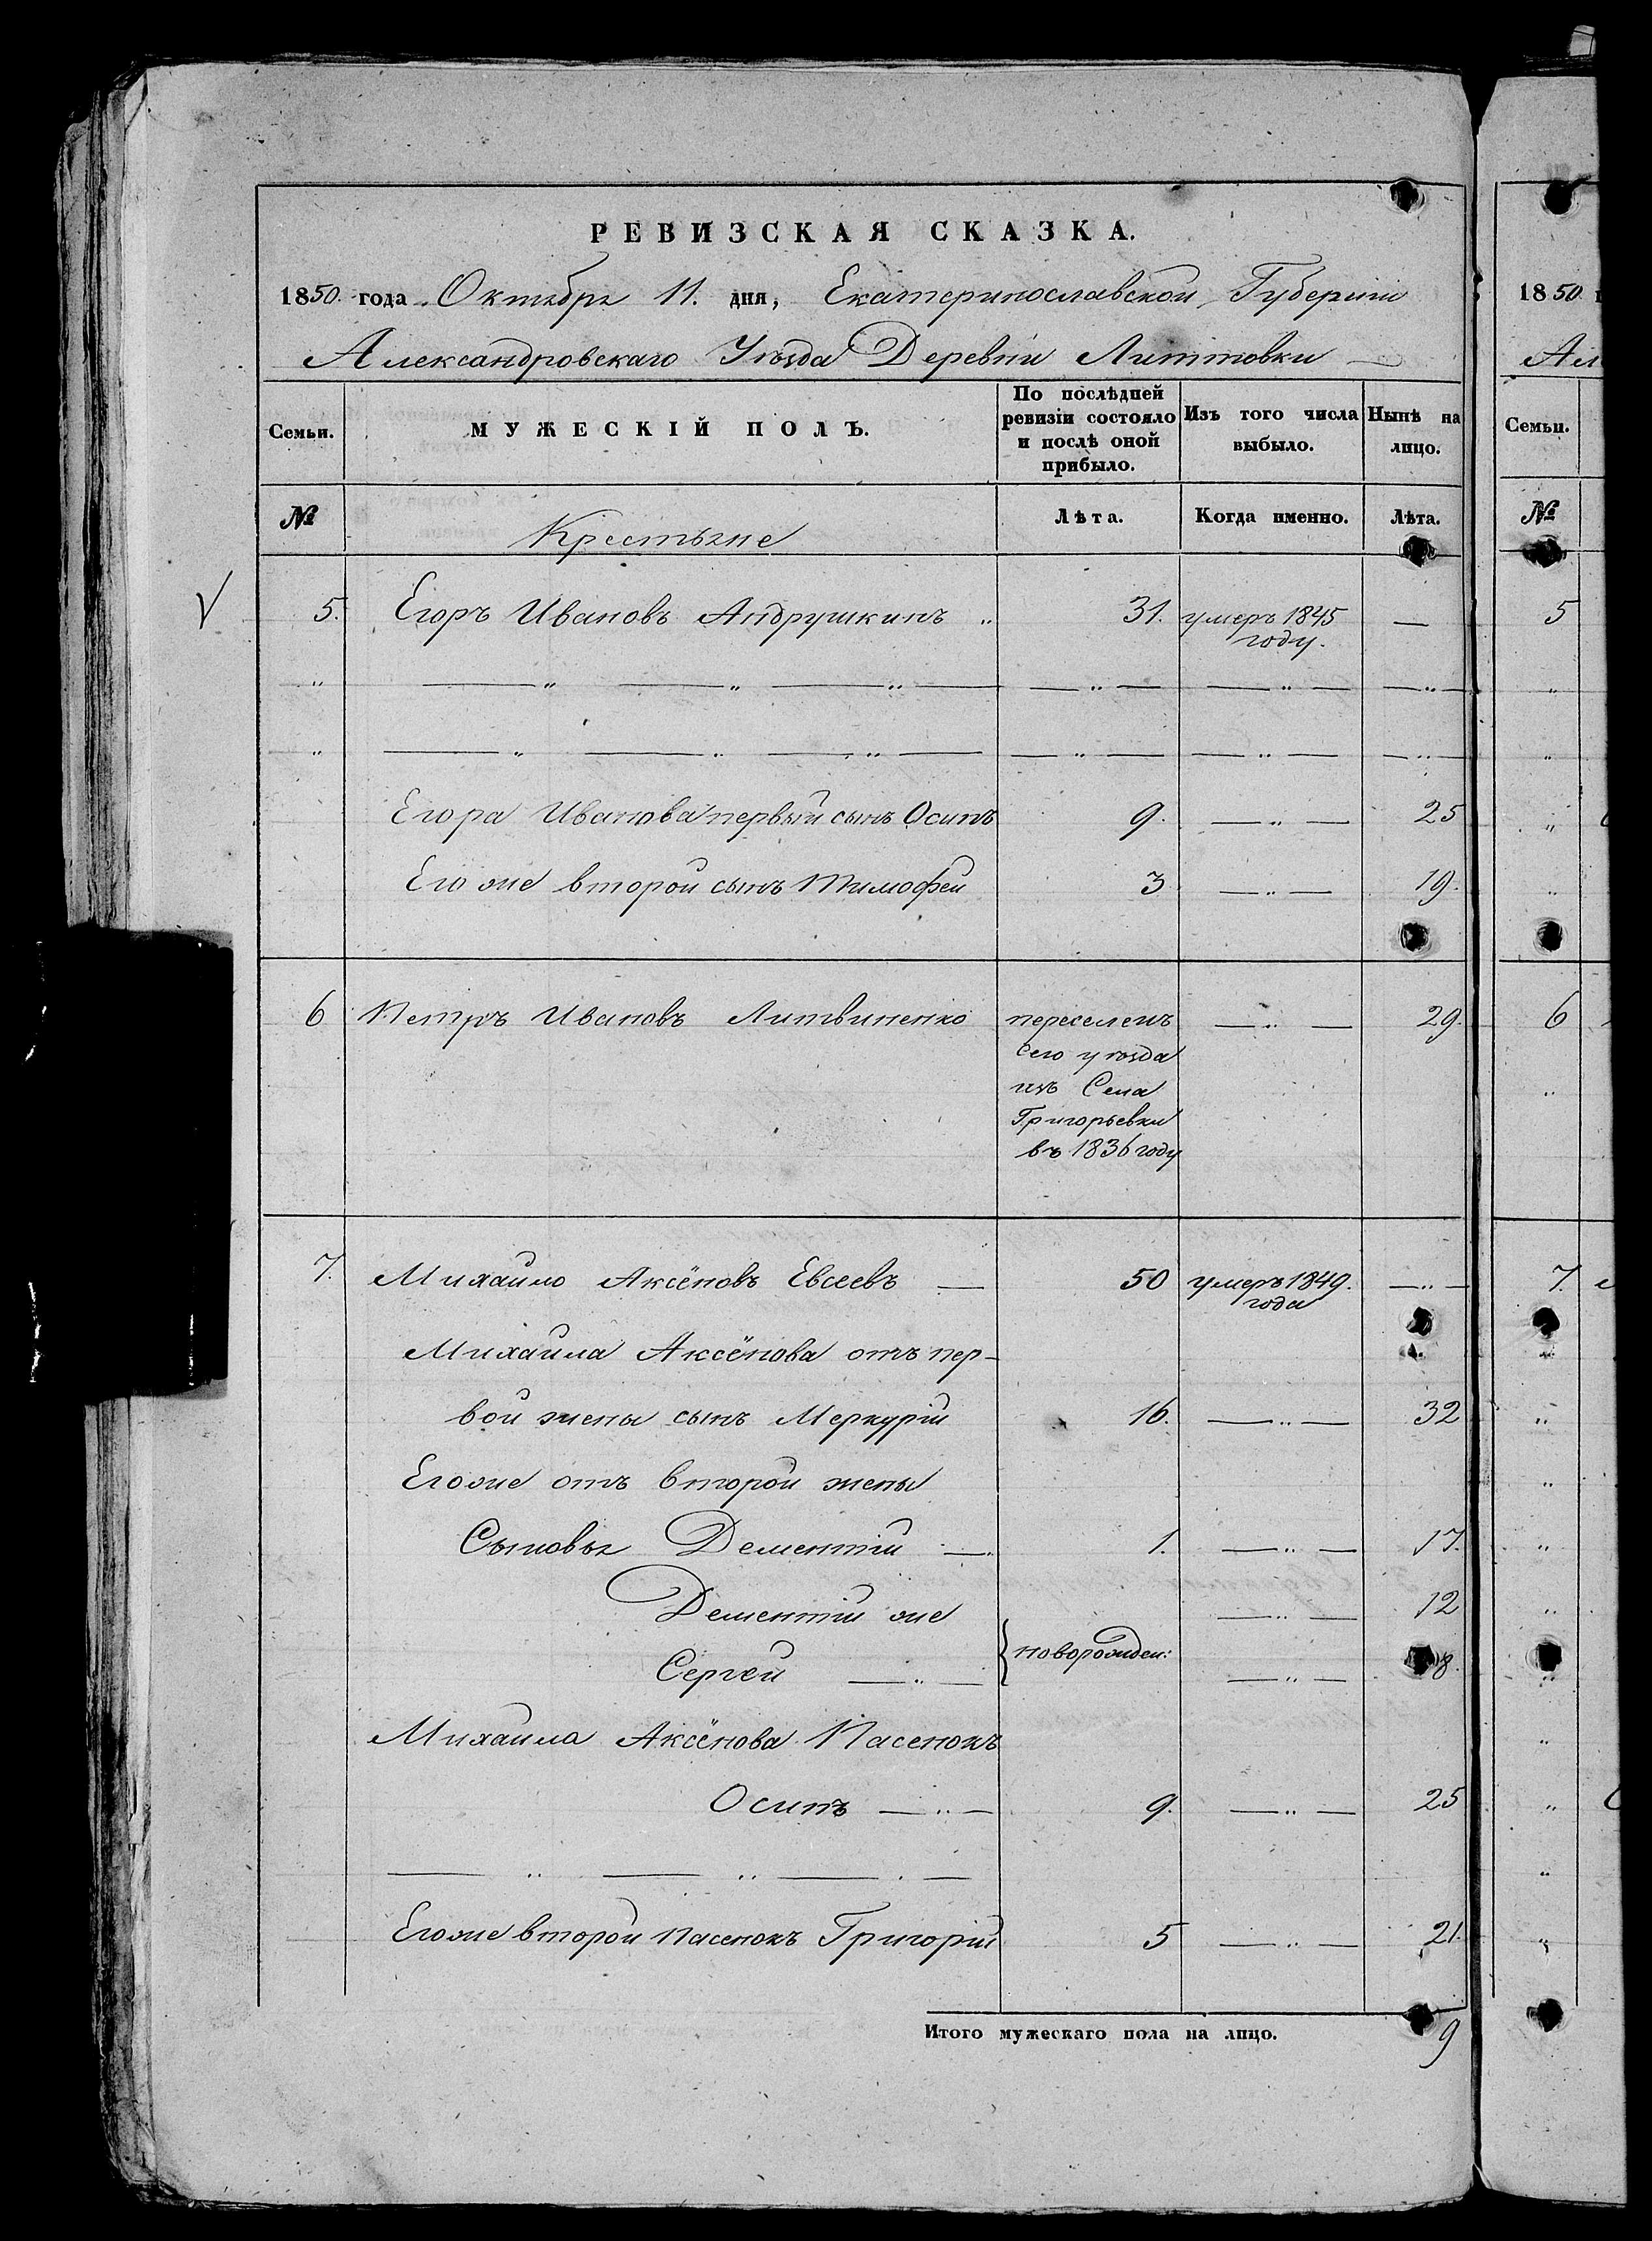 РЕВИЗСКАЯ СКАЗКА.
1850. года Октября 11. дня, Екатеринославской Губернии
Александровскаго Уѣзда Деревни Литтовки —
Семьи. МУЖЕСКІЙ ПОЛЪ. По послѣдней ревизіи состояло и послѣ оной прибыло. Изъ того числа выбыло. Нынѣ на лицо.
№ Крестьяне Лѣта. Когда именно. Лѣта.
5. Егоръ Ивановъ Андрушкинъ 31. умеръ 1845 —
году.
Егора Иванова первый сынъ Осипъ 9. — " — 25
Его же второй сынъ Тимофей 3 — " — 19.
6 Петръ Ивановъ Литвиненко переселенъ — " — 29.
сего уѣзда
изъ Села
Григорьевки
въ 1836 году
7. Михайло Аксёновъ Евсеевъ — 50 умеръ 1849. — " —
года
Михаила Аксёнова отъ пер-
вой жены сынъ Меркурій 16. — " — 32
Его же отъ второй жены
Сыновья Дементій — 1. — " — 17.
Дементій же — " — 12
новорожден:
Сергей — " — — " — 8.
Михаила Аксёнова Пасенокъ
Осипъ — " — 9. — " — 25
Его же второй Пасенокъ Григорій 5 — " — 21.
Итого мужескаго пола на лицо. 9
1850
Ал
Семьи.
№
5
6
7.